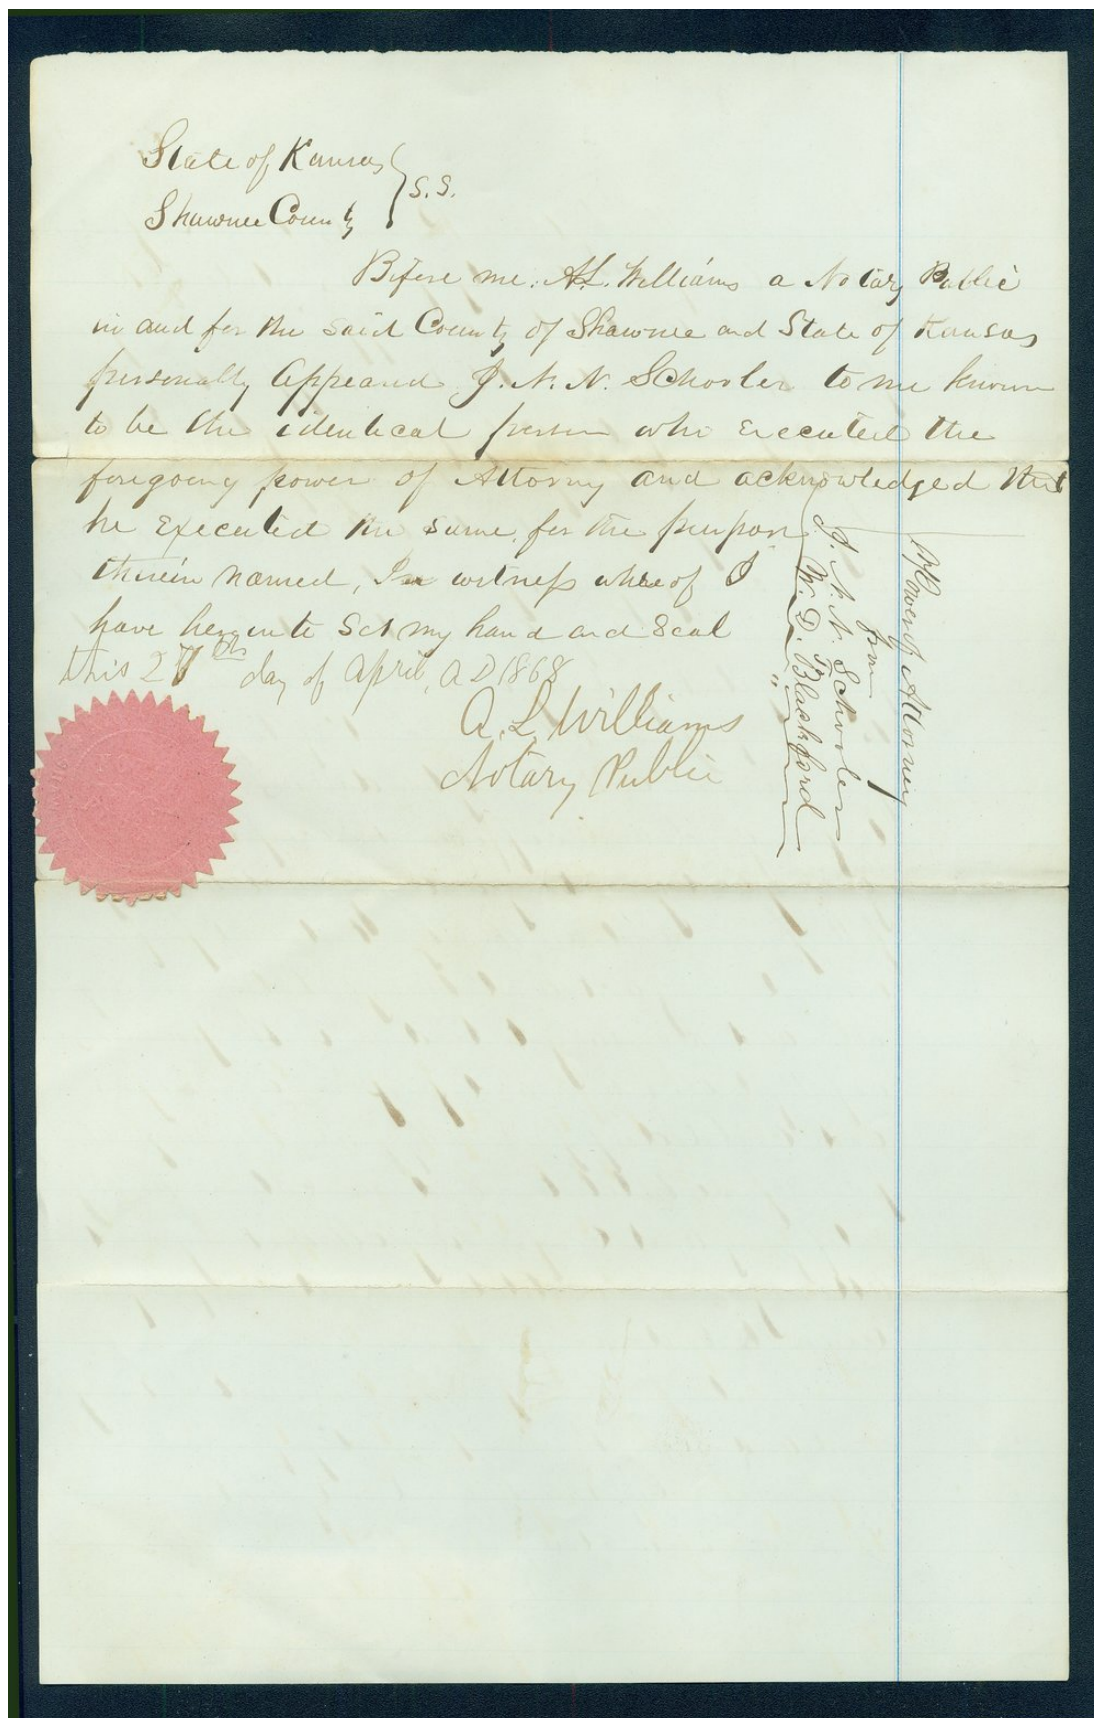 State of Kansas
Shawnee County } S.S.
Before me. A.L. Williams a Notary Public
in and for the said County of Shawnee and State of Kansas
personally Appeared J. N. N. Schooler to me known
to be the identical person who Executed the
foregoing power of Attorny and acknowledged that
he Executed the same, for the purpose
therein named, In witness whereof I
have hereunto Set my hand and Seal
this 27th day of April, A D 1868
A. L. Williams
Notary Public
Power of Attorney
from
J. N. N. Schooler
" W. D. Blackford